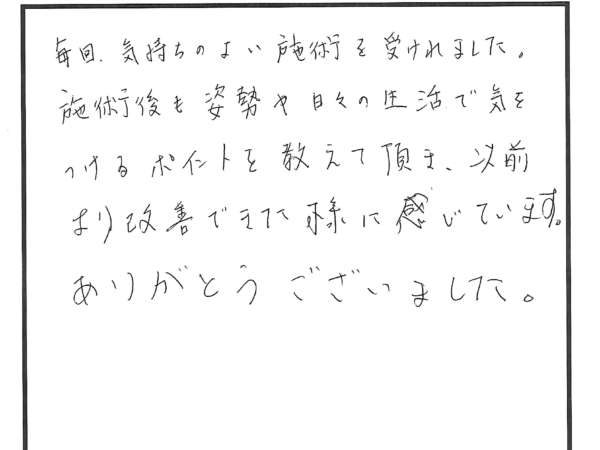 毎回、気持ちのよい施術を受けれました。
施術後も姿勢や日々の生活で気を
つけるポイントを教えて頂き、以前
より改善できた様に感じています。
ありがとうございました。